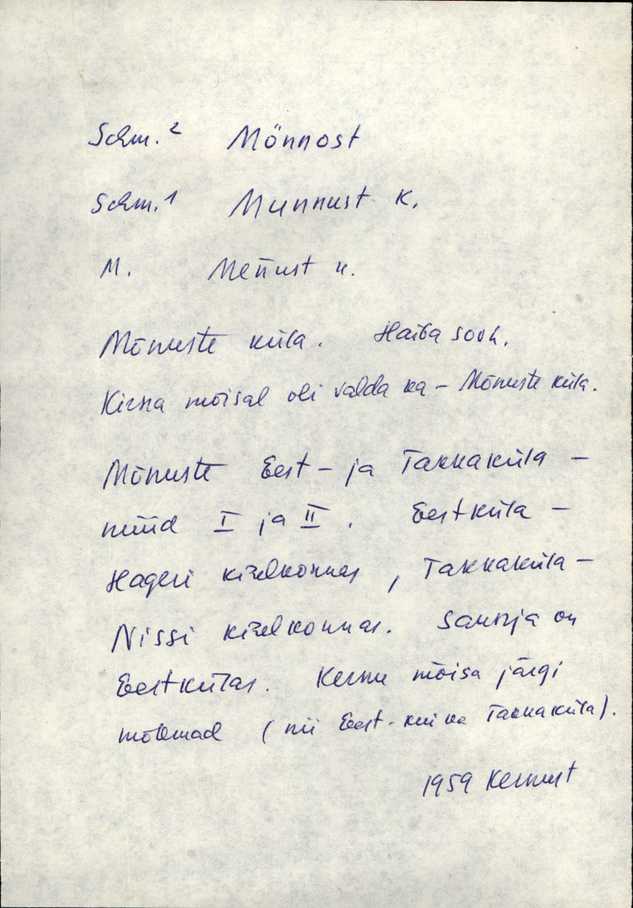 Schm.² Mönnost
Schm.1 Munnust K.
M. Mennust k.
Mõnuste küla. Haiba sovh.
Kirna mõisal oli valda ka – Mõnuste küla.
Mõnuste Eest- ja Takkaküla –
nüüd I ja II. Eestküla –
Hageri kihelkonnas, Takkaküla –
Nissi kihelkonnas. on
Eestkülas. Kernu mõisa järgi
mõlemad (nii Eest- kui ka Takkaküla).
1959 Kernust